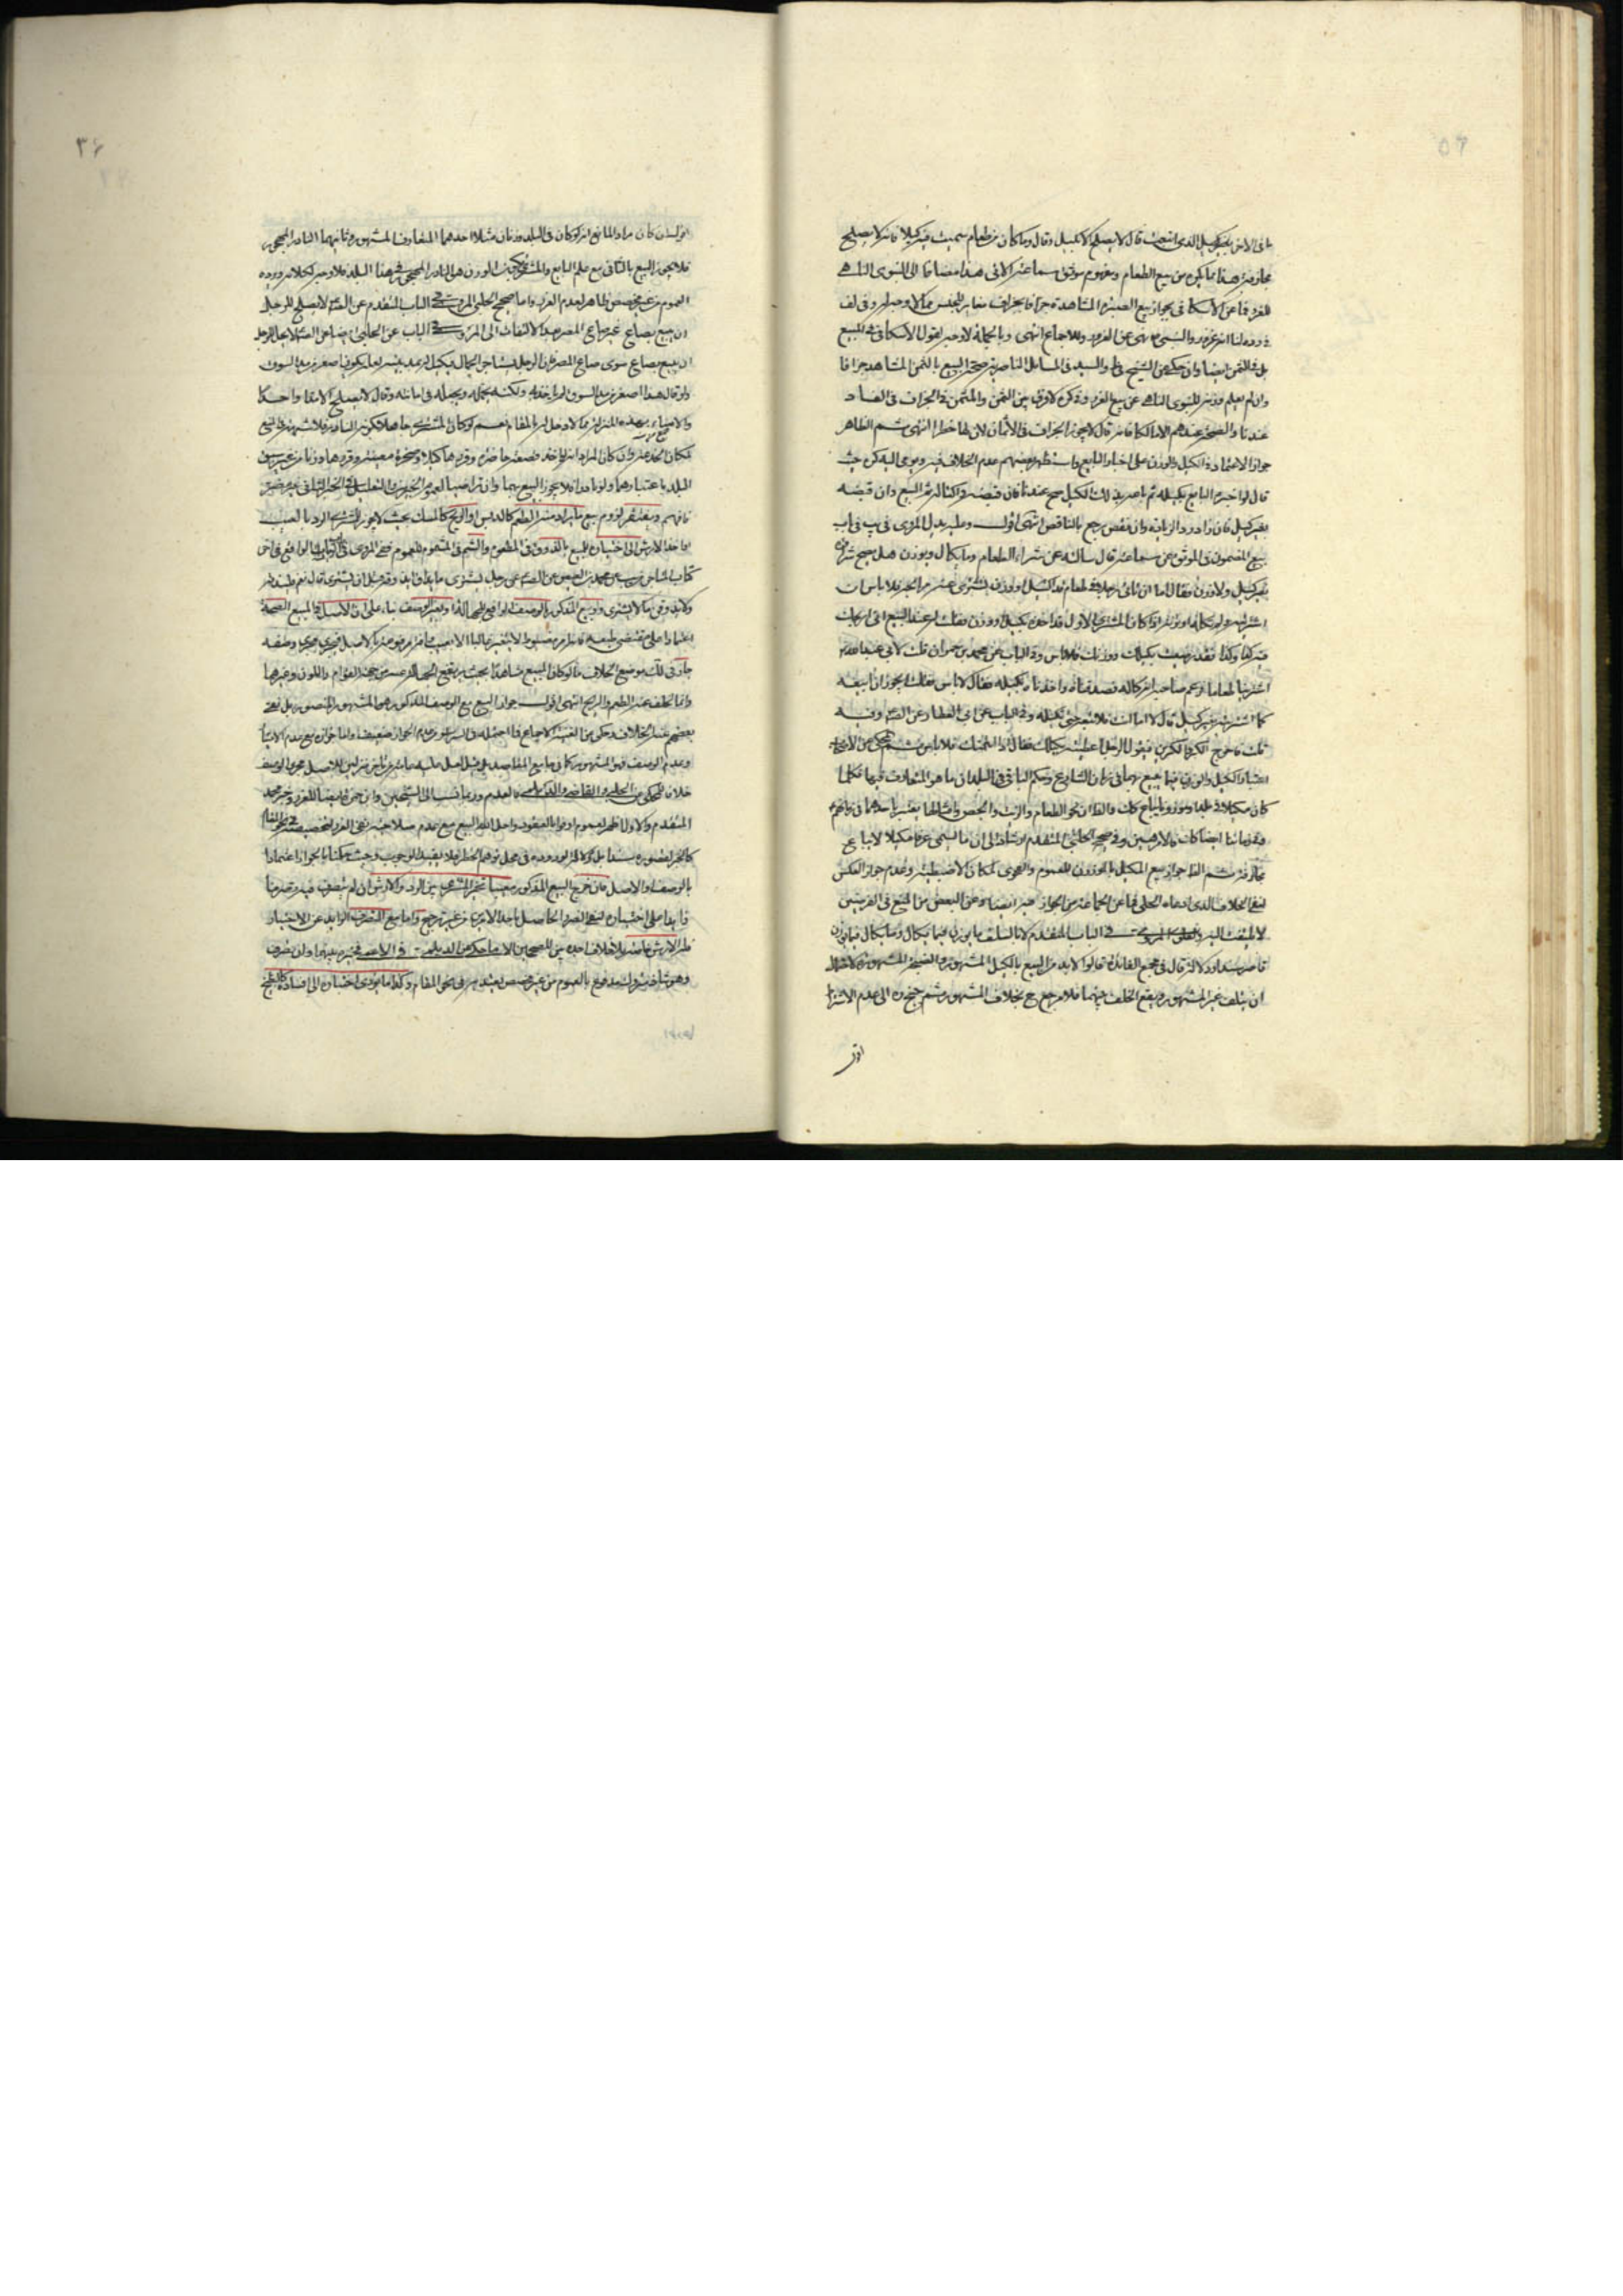 ما فى الاخر بغير كيل الذى ابتعت قال لا يصلح الا بكيل وقال وما كان من طعام سميت فيه كيلا فانه لا يصلح
مجازفة هذا مما يكره من بيع الطعام ومفهوم موثق سماعة الاتى هذا مضافا الى النبوى الناهى
للغرر فما عن الاسكافى بجواز بيع الصبرة المشاهدة جزافا بجزاف مغاير للجنس مما لا وجه له وفى لف
لنا انه غرر والنبى نهى عن الغرر وللاجماع انتهى وبالجملة لا وجه لقول الاسكافى فى المبيع
بل والثمن ايضا وان حكى عن الشيخ فى ط والسيد فى المسائل الناصرية صحة البيع بالثمن المشاهد جزافا
وان لم يعلم وزنه للنبوى الناهى عن بيع الغرر وفى كره لا فرق بين الثمن والمثمن فى الجزاف فى الفساد
عندنا والصحة عندهم الا مالكا فانه قال لا يجوز الجزاف فى الاثمان لان لها خطرا انتهى ثم الظاهر
جواز الاعتماد فى الكيل والوزن على اخبار البايع واستظهر بعضهم عدم الخلاف فيه ويومى اليه كره حيث
قال لو اخبره البايع بكيله ثم باعه بذلك الكيل صح عندنا فان قبضه واكتاله تم البيع وان قبضه
بغير كيل فان زاد رد الزيادة وان نقص رجع بالناقص انتهى اقول وعليه يدل المروى فى يب فى باب
بيع المضمون فى الموثق عن سماعة قال سالته عن شراء الطعام وما يكال ويوزن هل يصح شراؤه
بغير كيل ولا وزن فقال اما ان تاتى رجلا فى طعام قد اكتيل او وزن تشترى منه مرابحة فلا باس ان
اشتريته ولم تكله او تزنه اذا كان المشترى الاول قد اخذه بكيل او وزن فقلت له عند البيع انى اربحك
فيه كذا وكذا فقد رضيت بكيلك ووزنك فلا باس وفى الباب عن محمد بن حمران قلت لابى عبد الله
اشترينا طعاما فزعم صاحبه انه كاله فصدقناه واخذناه بكيله فقال لا باس فقلت ايجوز ان ابيعه
كما اشتريته بغير كيل قال لا اما انت فلا تبعه حتى تكيله وفى الباب عن ابى العطارد عن الص وفيه
قلت فاخرج الكر والكرين فيقول الرجل اعطنيه بكيلك فقال اذا ائتمنك فلا باس ثم المحكى عن الاصحاب
اعتبار الكيل والوزن فيما بيع بهما فى زمان الشارع وحكم الباقى فى البلدان ما هو المتعارف فيها فكلما
كان مكيلا فى بلد او موزونا يباع كك والظ ان نحو الطعام والزيت والجص وامثالها يعتبر باحدهما فى زمانهم
وفى زماننا ايضا كان فالامر هين وفى صحيح الحلبى المتقدم ارشاد الى ان ما يسمى عرفا مكيلا لا يباع
مجازفة ثم الظ جواز بيع المكيل بالموزون للعموم والفحوى لمكان الاضبطية وعدم جواز العكس
لنفى الخلاف الذى ادعاه الحلى فما عن الجماعة من الجواز فيه ايضا وعن البعض من المنع فى الفريقين
لا يلتفت اليه فى الباب المتقدم لا باس بالسلف ما يوزن فيما يكال وما يكال فيما يوزن
قاصر سندا ودلالة قال فى مجمع الفايدة قالوا لا بد من البيع بالكيل المشهور والصخرة المشهورة لاحتمال
ان يتلف غير المشهور ويقع الخلف بينهما فلا مرجع ح بخلاف المشهور ثم جنح ره الى عدم الاشتراط
اقول
اقول ان كان مراد المانع انه لو كان فى البلد وزنان مثلا احدهما المتعارف المشهور وثانيهما النادر المهجور
فلا يجوز البيع بالثانى مع علم البايع والمشترى بكون الوزن هو النادر المهجور فى هذا البلد فلا وجه لكلامه لوروده
العموم من غير مخصص ظاهر لعدم الغرر واما صحيح الحلبى المروى فى الباب المتقدم عن الص لا يصلح للرجل
ان يبيع بصاع غير صاع المصر فيه كالتفات الى المروى فى الباب عن الحلبى ايضا عن الص لا يحل للرجل
ان يبيع بصاع سوى صاع المصر فان الرجل يستاجر الجمال فيكيل له بمد بيته لعله يكون اصغر من مد السوق
ولو قال هذا اصغر من مد السوق لم ياخذ به ولكنه يحمله ويجعله فى امانته وقال لا يصلح الا مدا واحدا
والامناء بهذه المنزلة مما لا دخل له بالمقام نعم لو كان المشترى جاهلا بكونه النادر فلا شبهة فى المنع
لمكان الخدعة وان كان المراد انه لو اخذ قصعة حاضرة وقررها كيلا وصخرة معينة وقررها وزنا من غير سبق
البلد باعتبارهما ولو نادرا فلا يجوز البيع بهما وان تراضيا لعموم الخبرين والتعليل فى الخبر الثانى غير مضر
فافهم ويفتقر لزوم بيع ما يراد منه الطعم كالدبس او الريح كالمسك بحيث لا يجوز للمشترى الرد بالعيب
او اخذ الارش الى اختباره للبيع بالذوق فى المطعوم والشم فى المشموم للعموم ففى المروى فى الواقع فى اخر
كتاب عن محمد بن العيص عن الص عن رجل يشترى ما يذاق ايذوقه قبل ان يشترى قال نعم فليذقه
ولا يذوقن ما لا يشترى وبيع المذكور بالوصف الرافع للجهالة او بغير الوصف بناء على ان الاصل فى المبيع الصحة
اعتمادا على مقتضى طبعه فانه امر مضبوط لا يتغير غالبا الا لعيب فجرى مجرى وصفه
جايز فى ذلك موضع الخلاف ما لو كان المبيع مشاهدا بحيث يرتفع الجهالة عنه من جهة القوام واللون وغيرهما
وانما تخلف عنه الطعم والريح انتهى اقول جواز البيع مع الوصف المذكور هو المشهور المنصور بل نفى
بعضهم عنه الخلاف وحكى عن الغنية الاجماع فما احتمله فى السرائر من عدم الجواز ضعيف واما جوازه مع عدم الاختبار
وعدم الوصف فهو المشهور كما فى جامع المقاصد بل قيل لعل عليه عامة من تاخر تنزيلا للاصل مجرى الوصف
خلافا للمحكى عن الحلبى والقاضى والديلمى فالعدم وربما نسب الى الشيخين وابن حمزة ايضا للغرر وخبر محمد
المتقدم والاول اظهر لعموم اوفوا بالعقود واحل الله البيع مع عدم صلاحية نفى الغرر لتخصيصه فى نحو المقام
كالخبر لقصوره سندا بل دلالة لوروده فى محل توهم الحظر فلا يفيد الوجوب وحيث حكمنا بالجواز اعتمادا
بالوصف او الاصل فان خرج المبيع المذكور معيبا تخير المشترى بين الرد والارش ان لم يتصرف فيه تصرفا
زايدا على اختباره لنفى الضرر الحاصل باحد الامرين من غير ترجيح واما مع التصرف الزايد عن الاختبار
فله الارش خاصة بلا خلاف اجده بين المصححين الا ما حكى عن الديلمى فى الاعمى فخيره بينهما وان تصرف
وهو شاذ متروك مدفوع بالعموم من غير مخصص يعتد به فى نحو المقام وكذا ما يؤدى اختباره الى افساده كالبطيخ